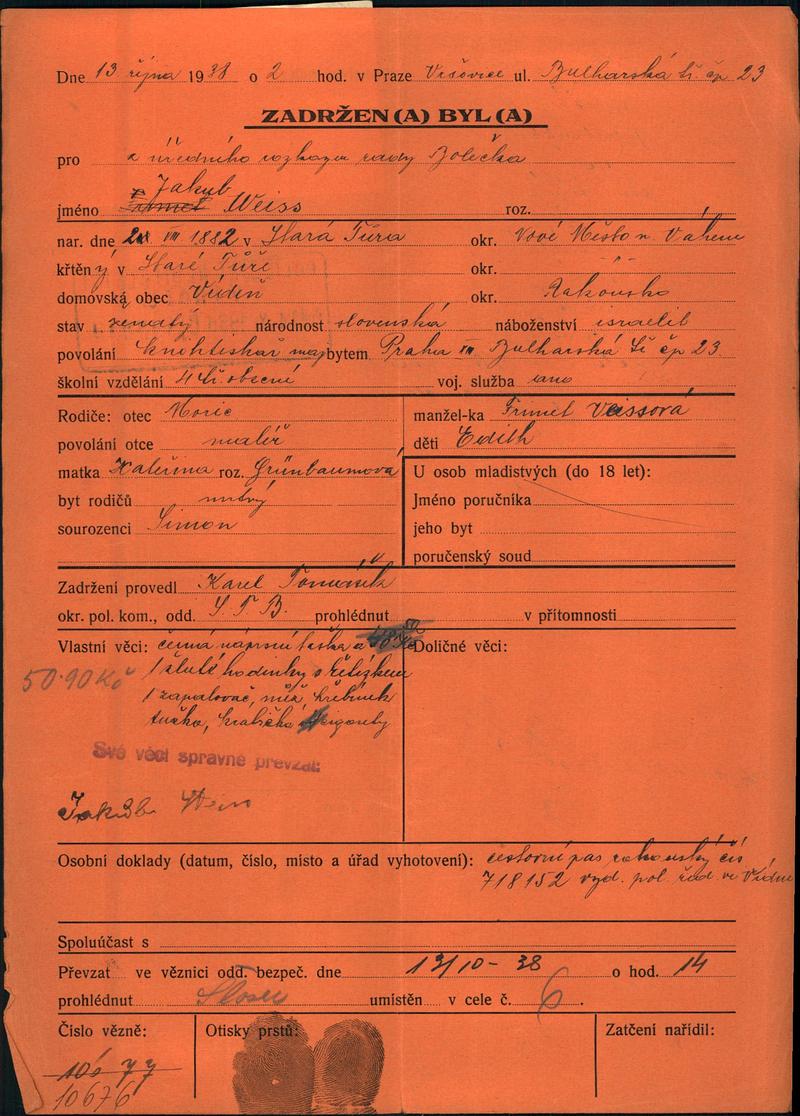 Dne 13 října 1938 o 2 hod. v Praze Vršovice ul. Bulharská tř. čp 23
ZADRŽEN(A) BYL(A)
pro z úředního rozkazu rady Bolečka
x Jakub
jméno Weiss roz.
nar. dne VIII 1882 v Stará Túra okr. Nové Město n. Váhem
křtěný v Staré Túře okr. -"-
domovská obec Vídeň okr. Rakousko
stav ženatý národnost slovenská náboženství israelit
povolání maj bytem Praha XIII Bulharská tř čp 23
školní vzdělání 4 tř. obecní voj. služba ano
Rodiče: otec Moric manžel-ka Frimet Veissová
povolání otce malíř děti Edith
matka Kateřina roz. Grünbaumová U osob mladistvých (do 18 let):
byt rodičů mrtvý Jméno poručníka
sourozenci Simon jeho byt
poručenský soud
Zadržení provedl Karel
okr. pol. kom., odd. S T B. prohlédnut v přítomnosti
Vlastní věci: černá náprsní taška a Doličné věci:
50·90 Kč 1 žluté hodinky s řetízkem
1 zapalovač, nůž, hřebínek
tužka, krabička cigarety
Své věci správně převzal:
Jakub Weiss
Osobní doklady (datum, číslo, místo a úřad vyhotovení): cestovní pas rakouský čís
718152 vyd. pol. řed. ve Vídni
Spoluúčast s
Převzat ve věznici odd. bezpeč. dne 13/10 - 38 o hod. 14
prohlédnut umístěn v cele č. 6.
Číslo vězně: Otisky prstů: Zatčení nařídil:
106 77
10676